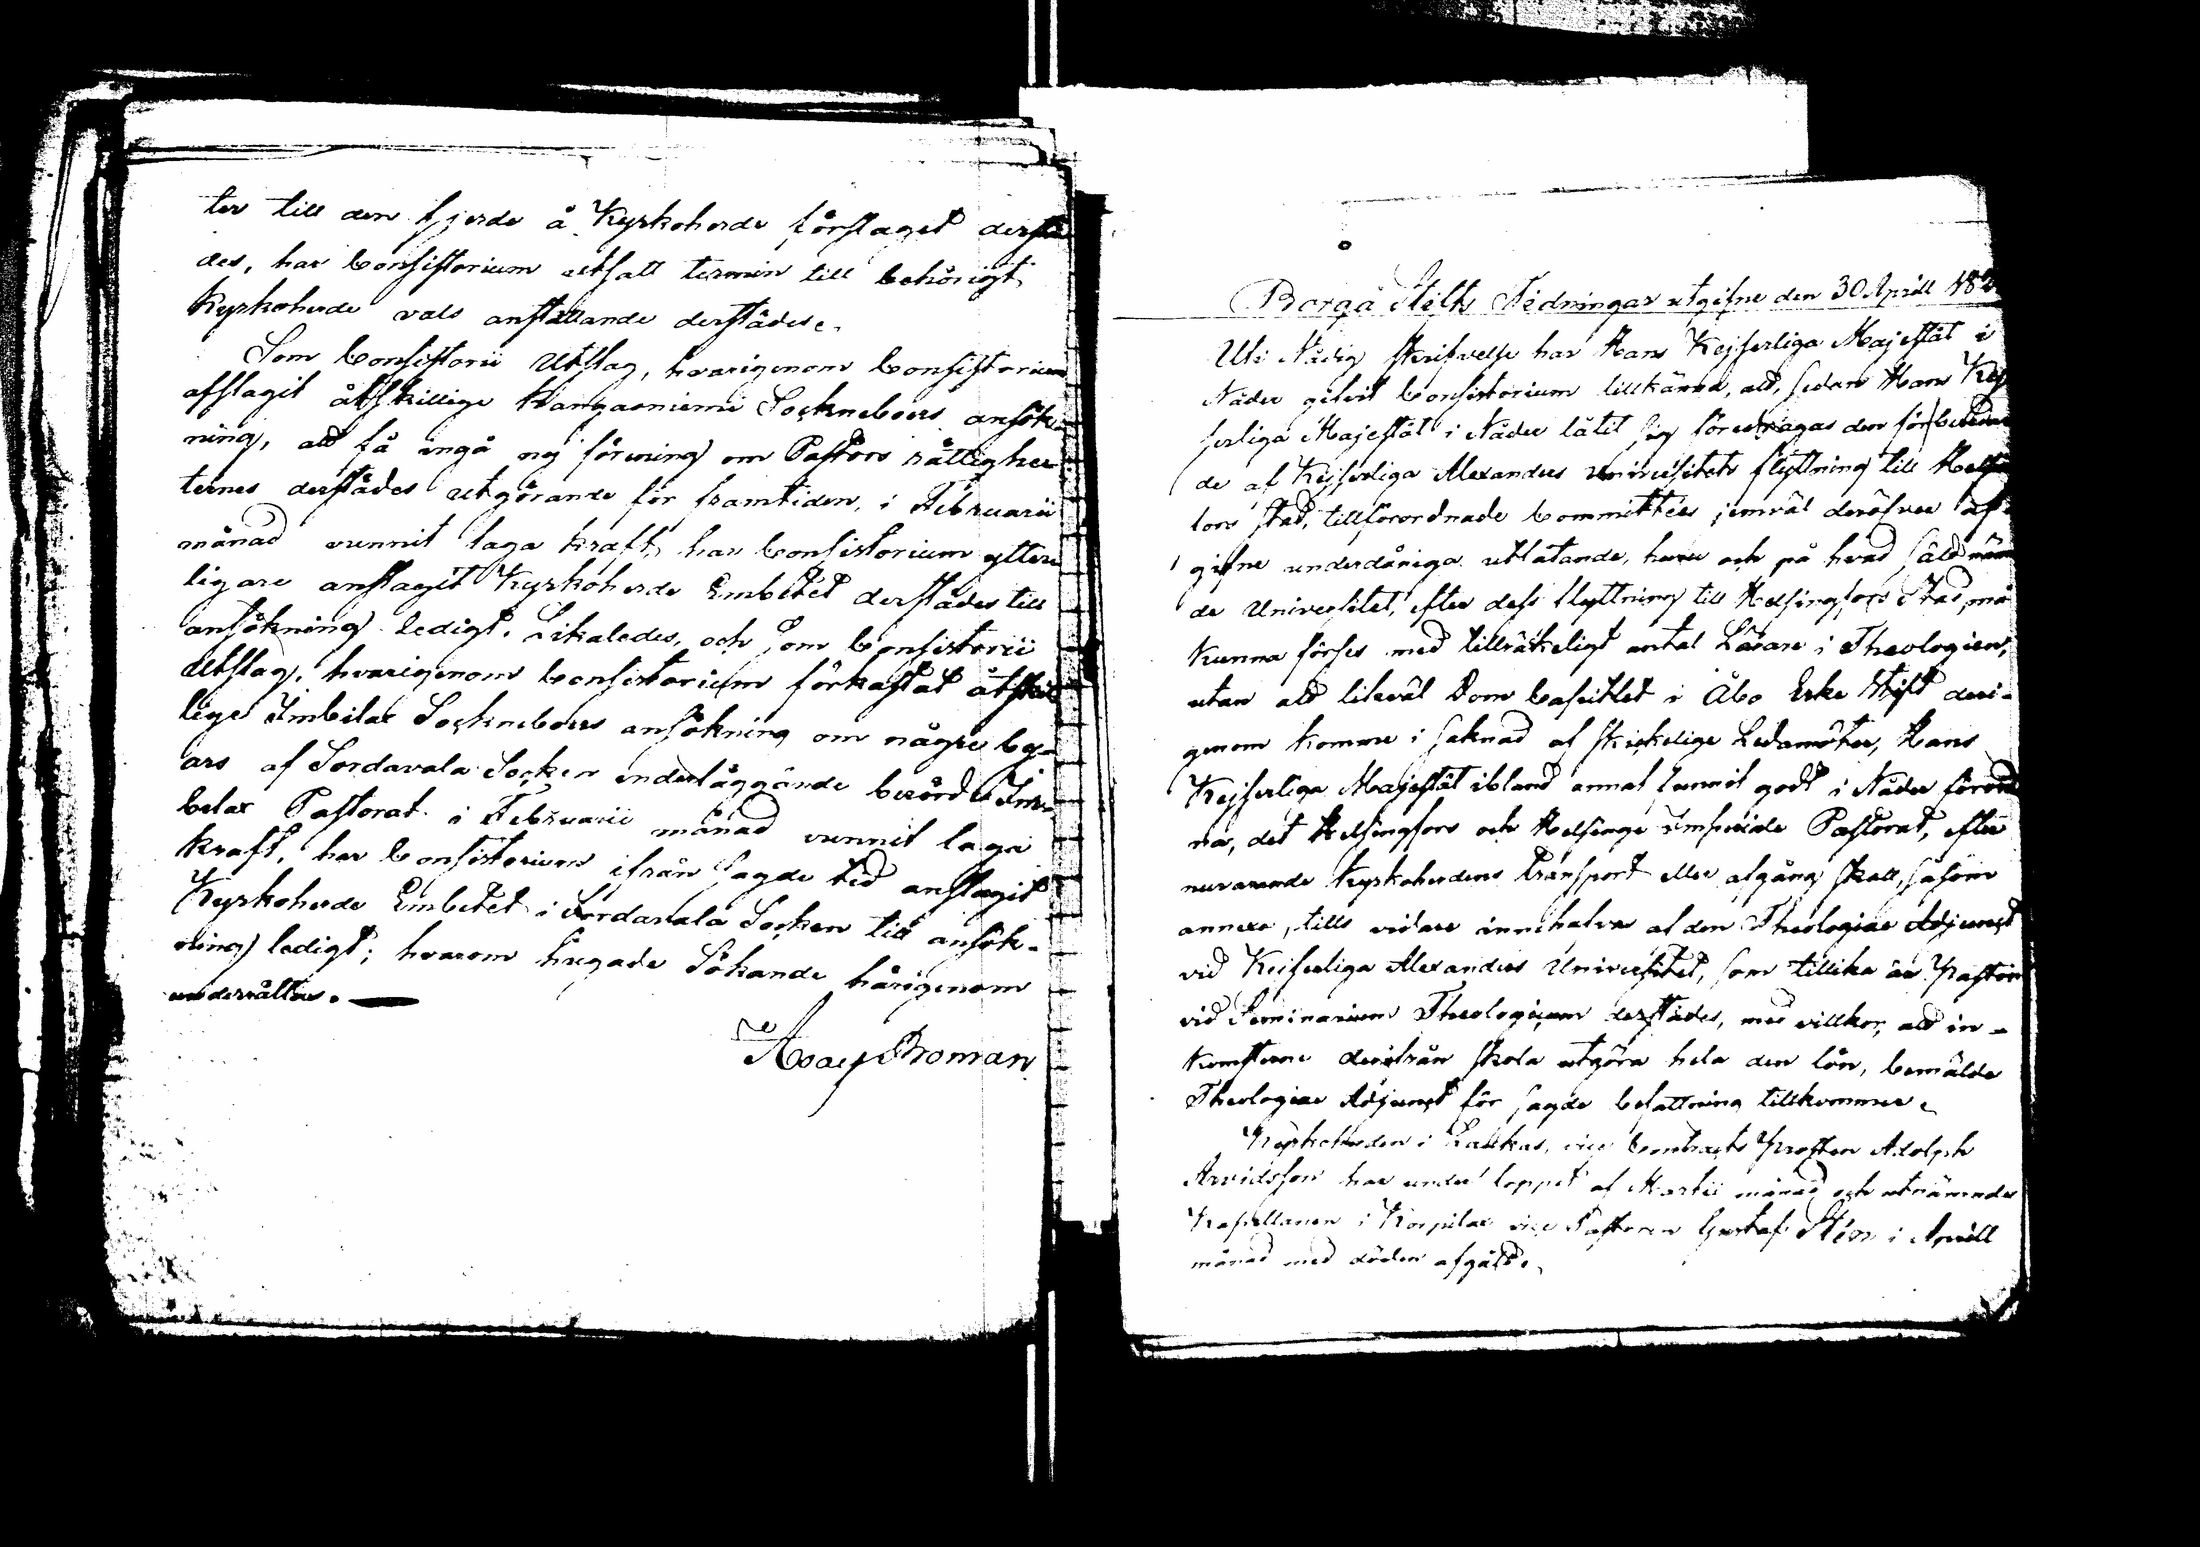 ter till den fjerde å Kyrkoherde förslaget derstä
des, har Consistorium utsatt termin till behörigt
Kyrkoherde vals anställande derstädes.
Som Consistorii Utslag, hvarigenom Consistorium
afslagit åtskillige Kangasniemi Sockneboers ansök-
ning, att få ingå ny förening om Pastors rättighe-
ternes derstädes utgörande för framtiden, i Februarii
månad vunnit laga kraft, har Consistorium ytter-
ligare anslagit Kyrkoherde Embetet derstädes till
ansökning ledigt. Likaledes, och som Consistorii
Utslag, hvarigenom Consistorium förkastat åtskil
lige Imbilax Sockneboers ansökning om någre by-
ars af Sordavala Socken underläggande berörde Im-
belax Pastorat i Februarii månad vunnit laga
kraft, har Consistorium ifrån sagde tid anslagit
Kyrkoherde Embetet i Sordavala Socken till ansök-
ning ledigt; hvarom hugade Sökande härigenom
underrättas.
Broman
Borgå Stifts Tidningar utgifne den 30 Aprill 182
Uti Nådig skrifvelse har Hans Kejserliga Majestät i
Nåder gifvit Consistorium tillkänna, att, sedan Hans Kej
serliga Majestät i Nåder låtit sig föredragas den för beredan
de af Kejserliga Alexanders Universitets flyttning till Helsing
fors stad, tillförordnade Committées jemväl deröfver af-
gifne underdåniga utlåtande, huru och på hvad sätt näm
de Universitet, efter dess flyttning till Helsingfors Stad, må
kunna förses med tillräckeligt antal Lärare i Theologien,
utan att likväl Dom Capitlet i Åbo Erke Stift deri-
genom komme i saknad af skickelige Ledamöter, Hans
Kejserliga Majestät ibland annat funnit godt i Nåder förord
na, det Helsingfors och Helsinge Imperiale Pastorat, efter
nuvarande Kyrkoherdens transport eller afgång skall, såsom
annexe, tills vidare innehafvas af den Theologiae Adjunct
vid Keiserliga Alexanders Universitet, som tillika är Pastor
vid Seminarium Theologicum derstädes, med villkor, att in-
komsterne derifrån skola utgöra hela den lön, bemälde
Theologiae Adjunct för sagde befattning tillkommer.
Kyrkoherden i Laukas, vice Contracts Prosten Adolph
Arvidsson har under loppet af Martii månad och utnämnde
Kapellanen i Korpilax vice Pastoren Gustaf Stén i Aprill
månad med döden afgått.